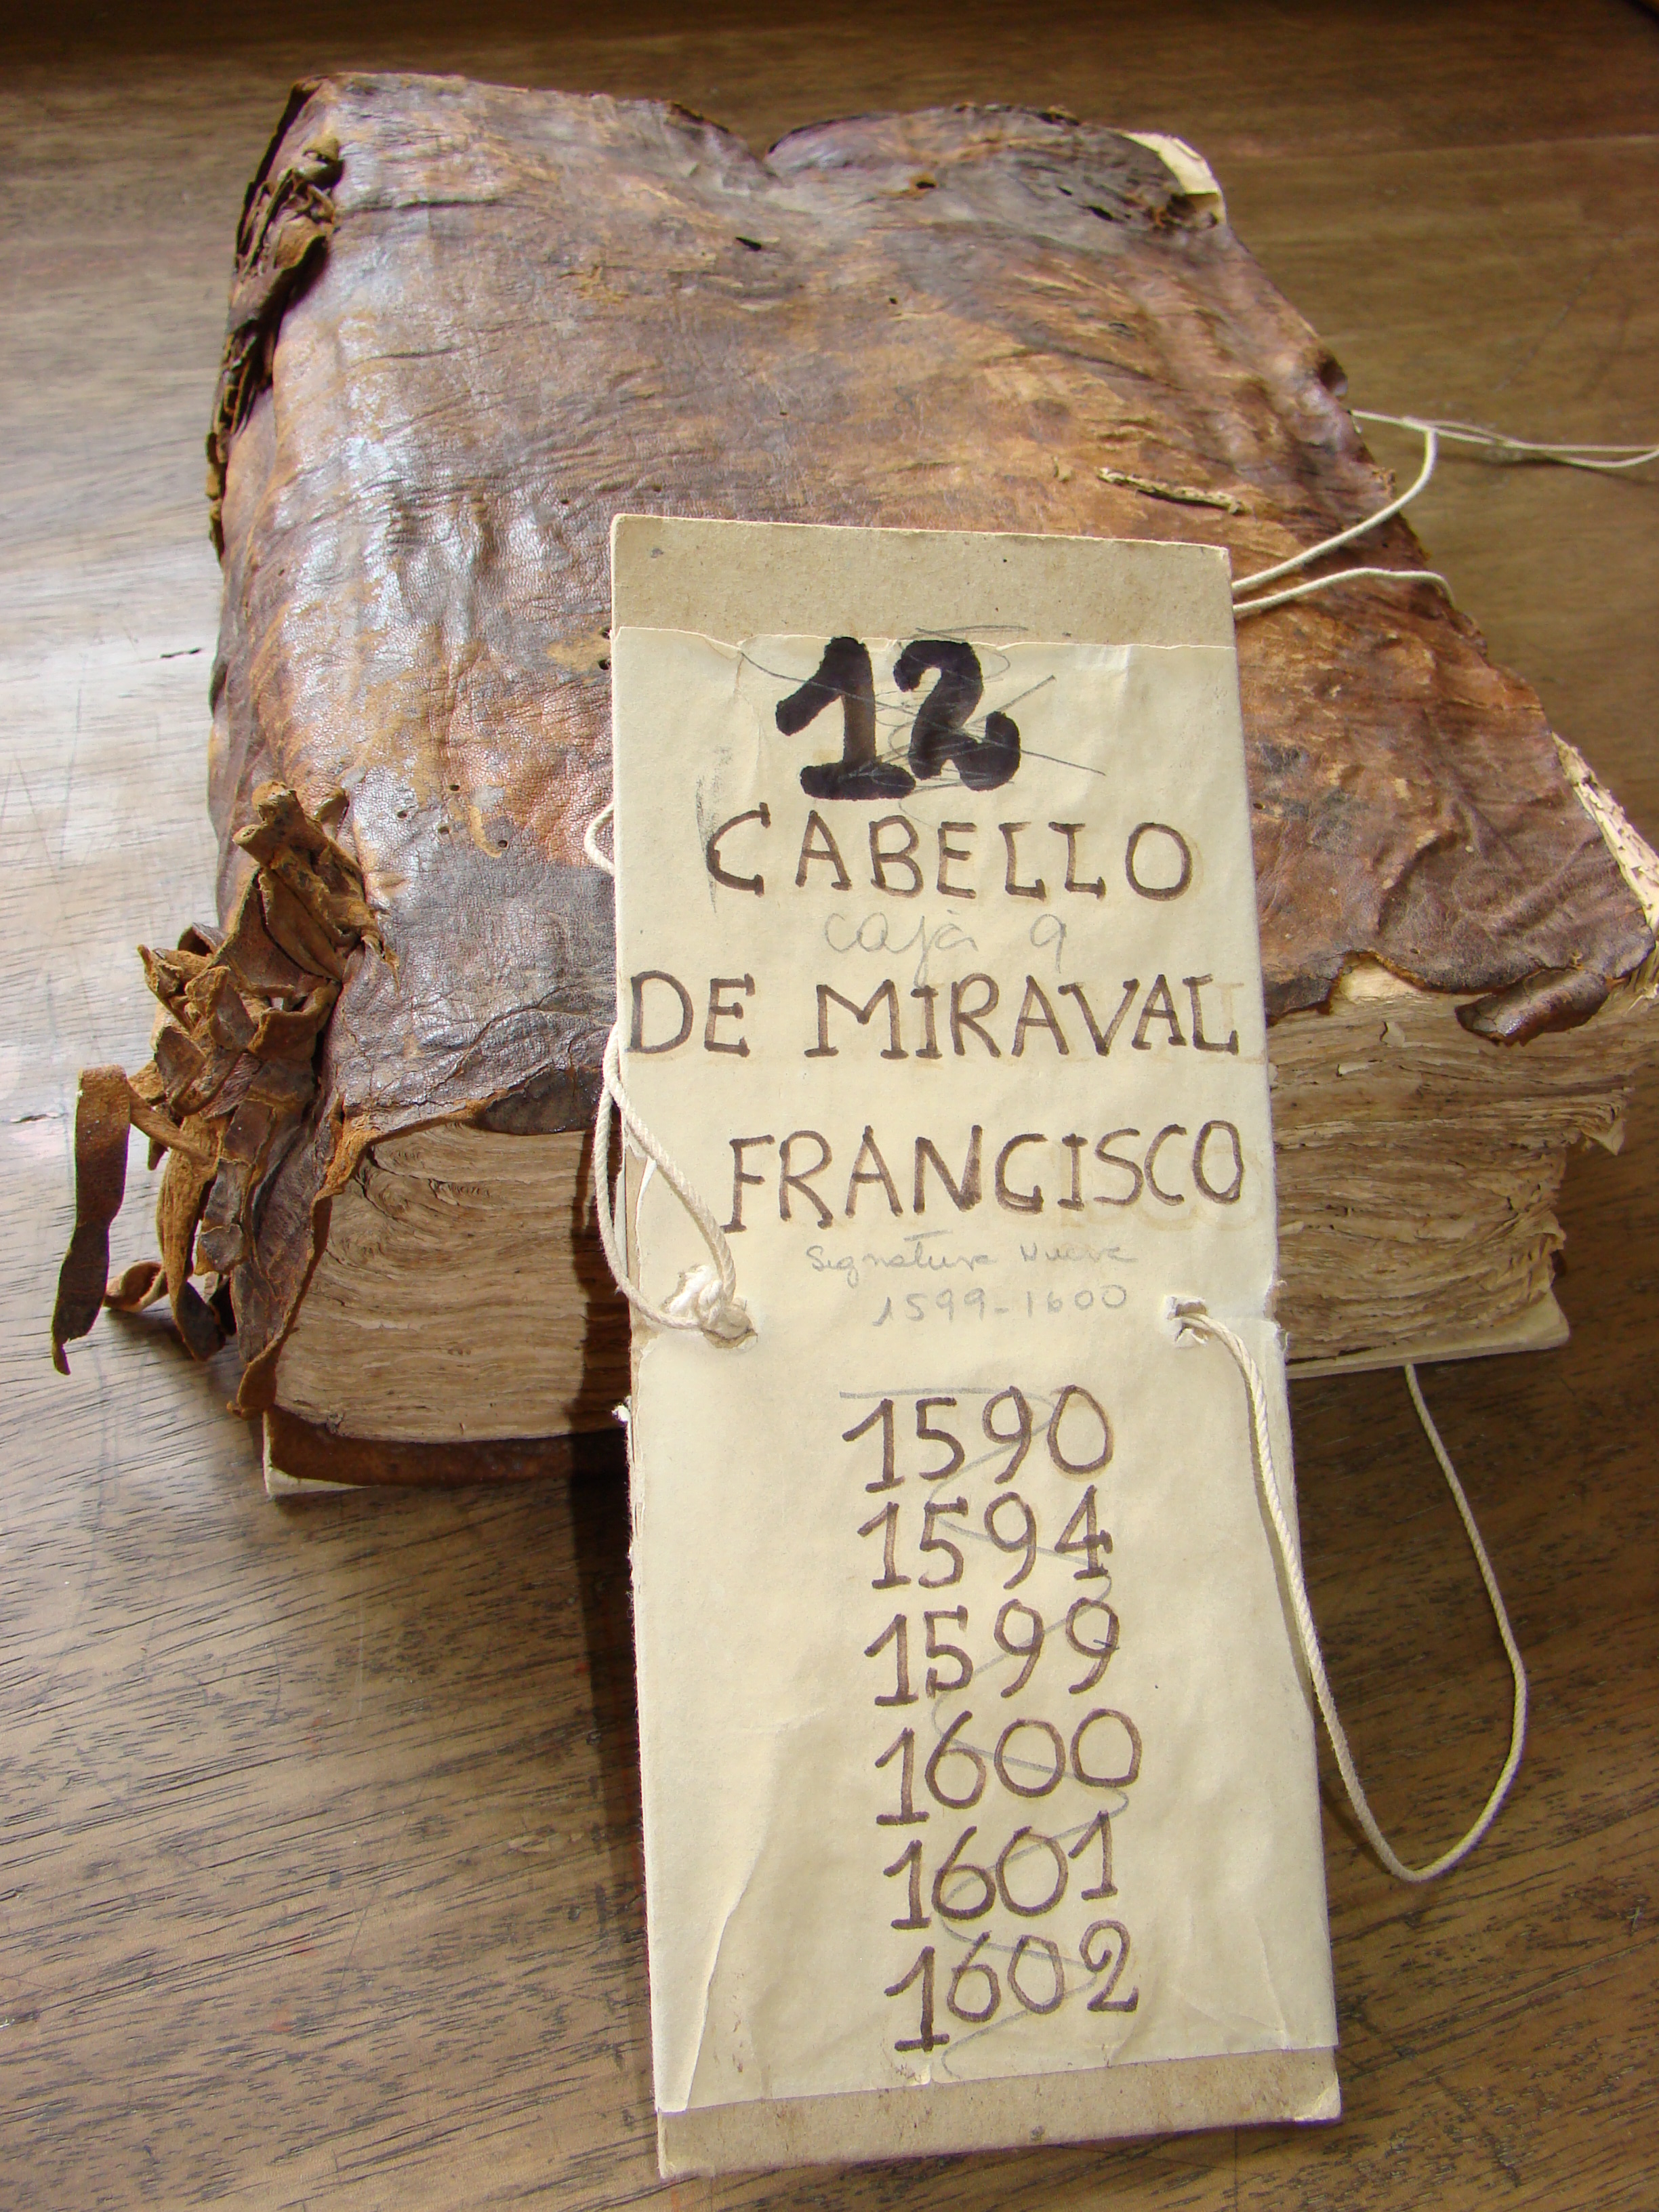 12
CABELLO
caja 9
DE MIRAVAL
FRANCISCO
Signatura Nueva
1599-1600
1590
1594
1599
1600
1601
1602